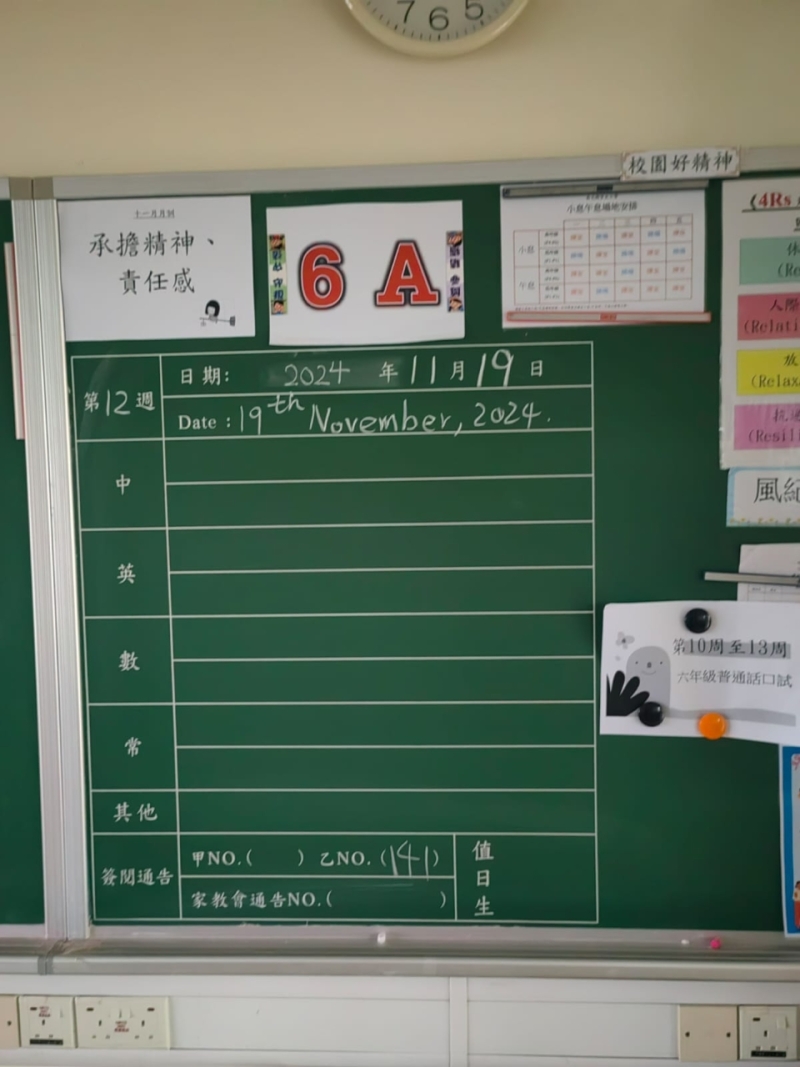 7 6 5
校園好精神
十一月月訓
承擔精神、
責任感
6 A
小息午息場地安排
小息
午息
(4Rs
(Relati
(Relax
(Resili
風紀
第12週
日期: 2024 年 11 月 19 日
Date : 19th November, 2024.
中
英
數
常
其他
簽閱通告
甲NO.( ) 乙NO.(141)
家教會通告NO.( )
值
日
生
第10周至13周
六年級普通話口試